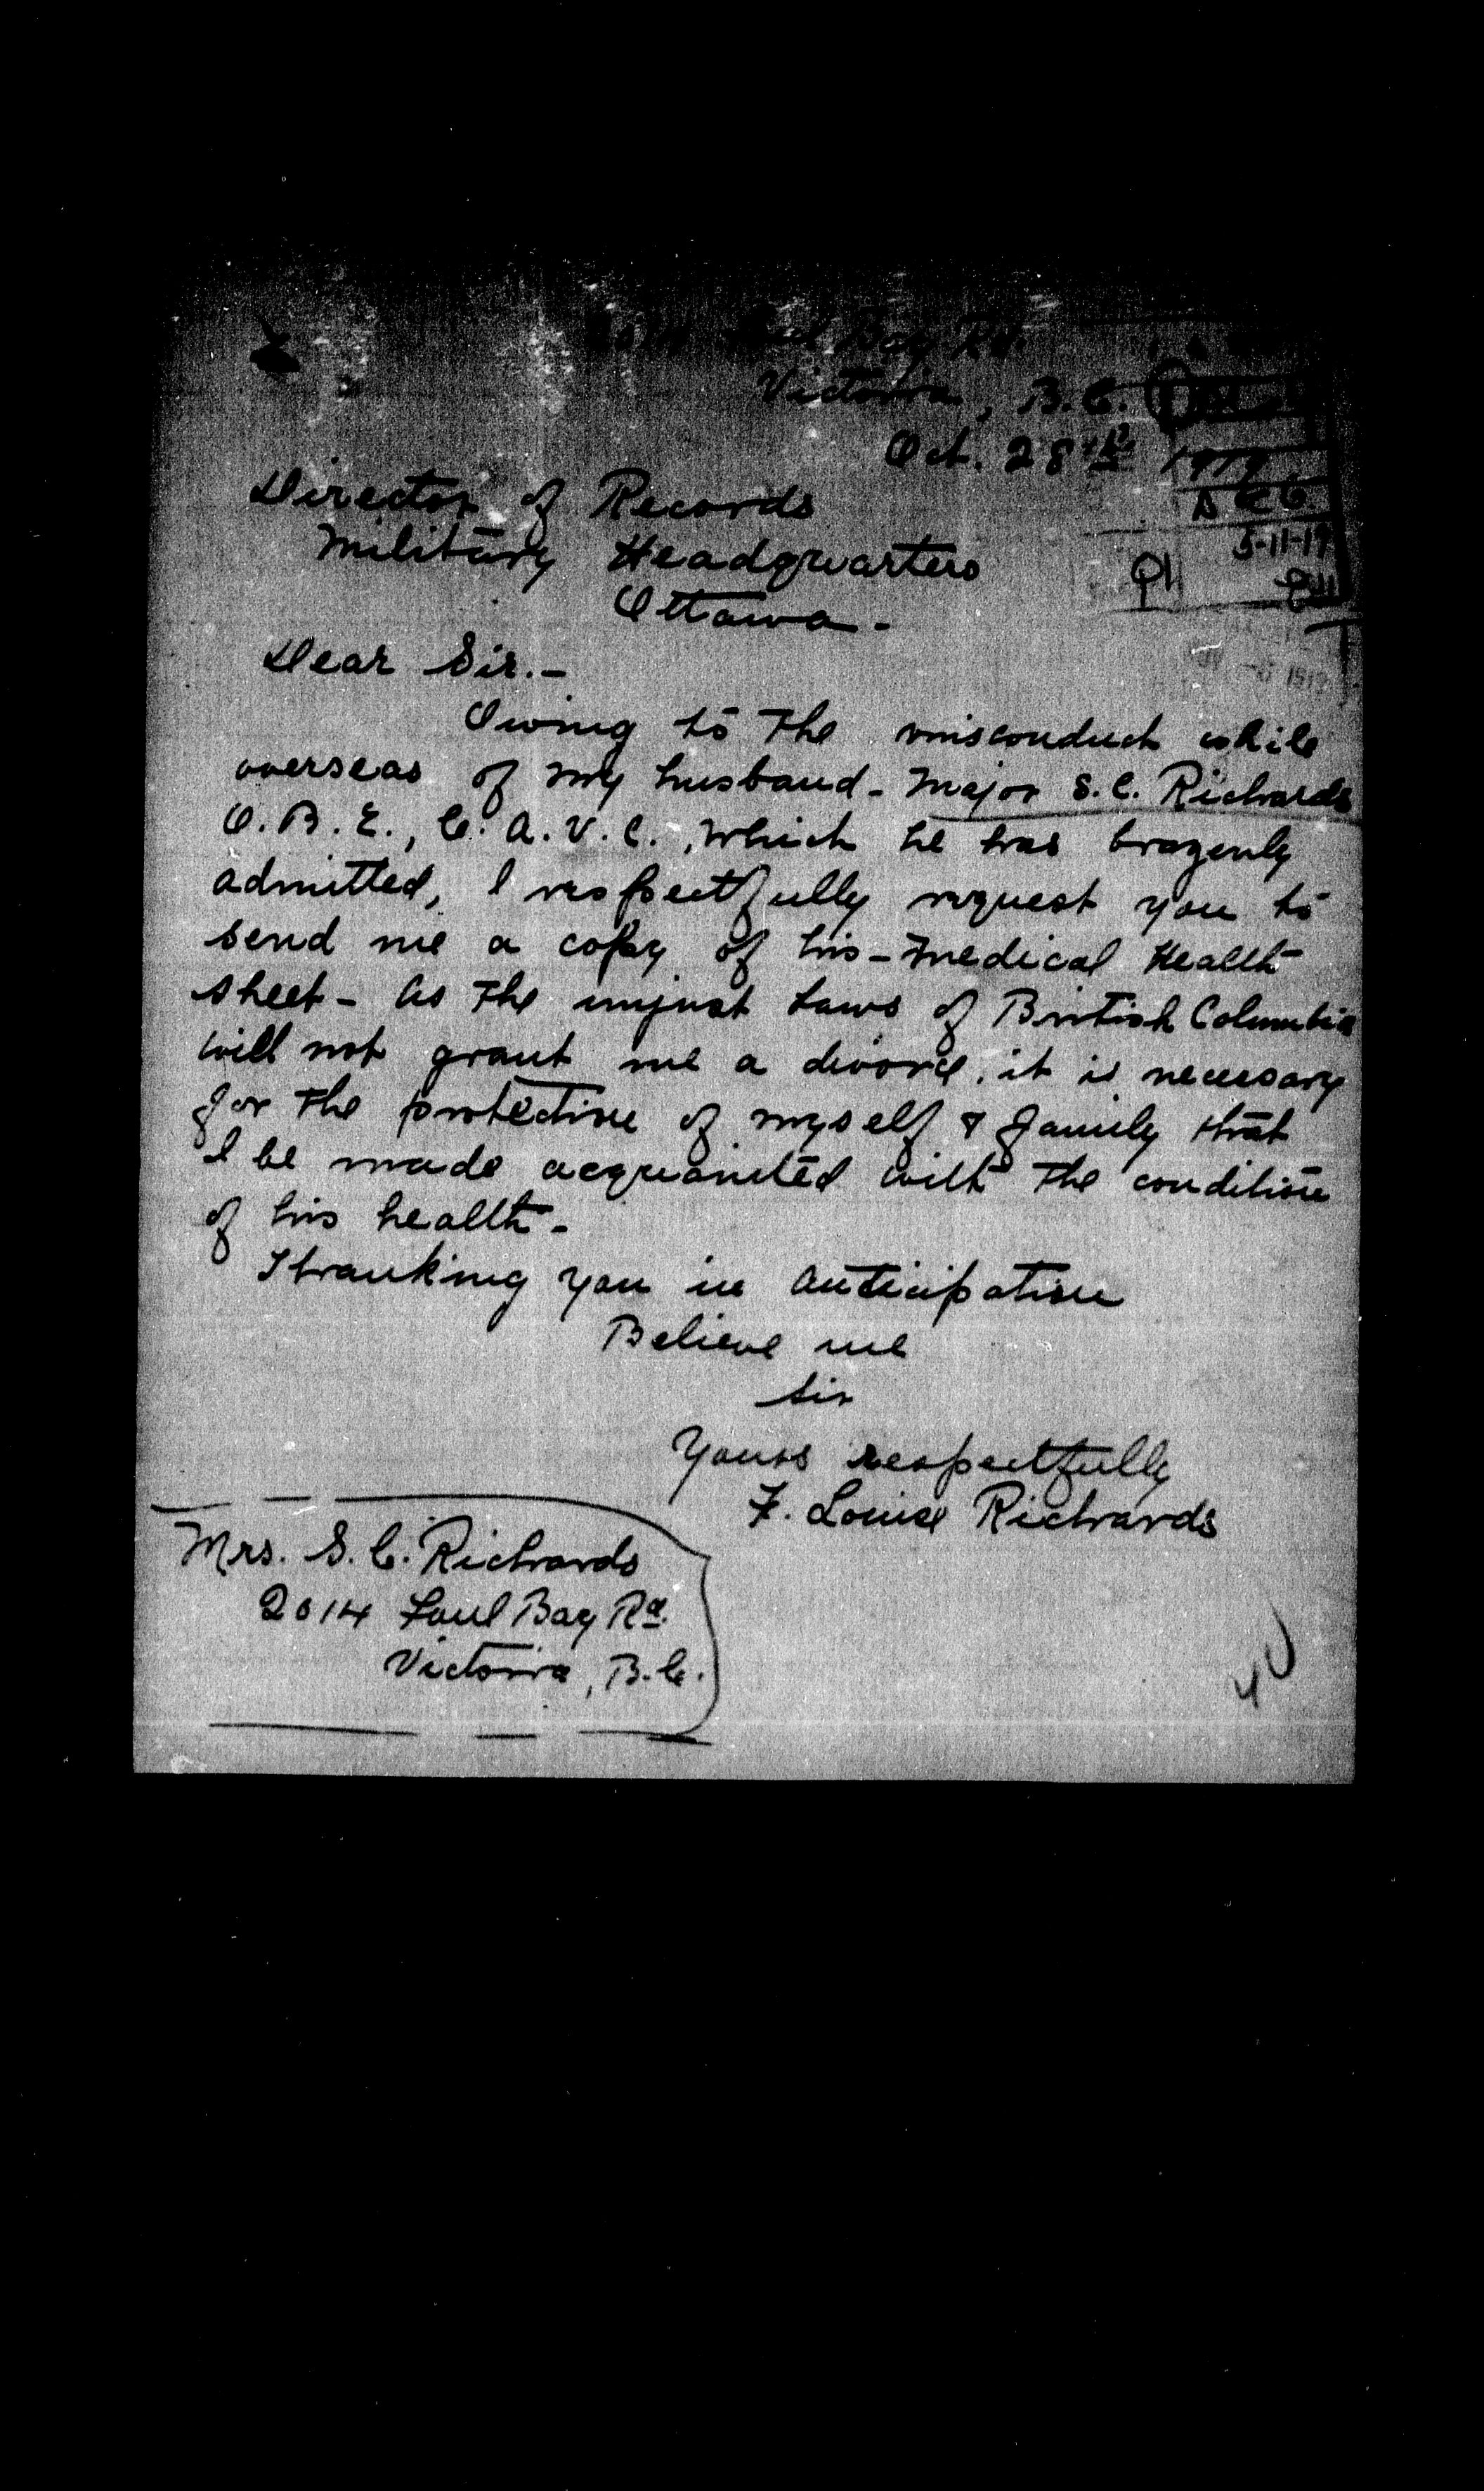 2014 Foul Bay Rd.
Victoria, B.C.
Oct. 28th 1919
Director of Records
Military Headquarters
Ottawa -
5-11-19
Dear Sir. -
Owing to the misconduct while
overseas of my husband - Major S. C. Richards
O.B.E., C.A.V.C., which he has brazenly
admitted, I respectfully request you to
send me a copy of his - Medical Health
Sheet - As the unjust Laws of British Columbia
will not grant me a divorce, it is necessary
for the protection of myself & family that
I be made acquainted with the condition
of his health -
Thanking you in anticipation
Believe me
Sir
Yours respectfully
F. Louise Richards
Mrs. S. C. Richards
2014 Foul Bay Rd.
Victoria, B.C.